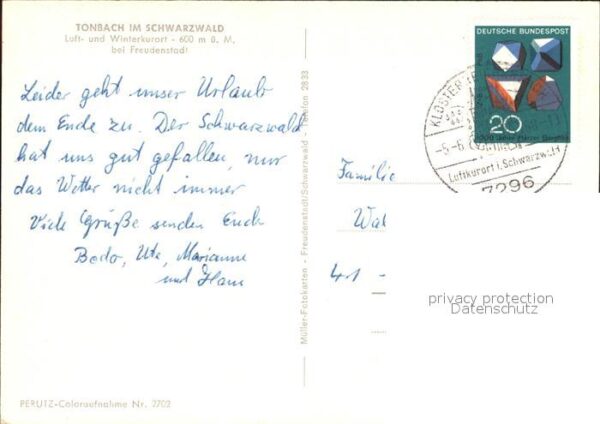 TONBACH IM SCHWARZWALD
Luft- und Winterkurort - 600 m ü. M.
bei Freudenstadt
Leider geht unser Urlaub
dem Ende zu. Der Schwarzwald
hat uns gut gefallen, nur
das Wetter nicht immer
Viele Grüße senden Euch
Bodo, Ute, Marianne
und Hans
Müller-Fotokarten - Freudenstadt/Schwarzwald - Telefon 2833
DEUTSCHE BUNDESPOST
20
KLOSTER
Luftkurort i. Schwarzwald
7296
Familie
Wal
privacy protection
Datenschutz
PERUTZ-Coloraufnahme Nr. 2702